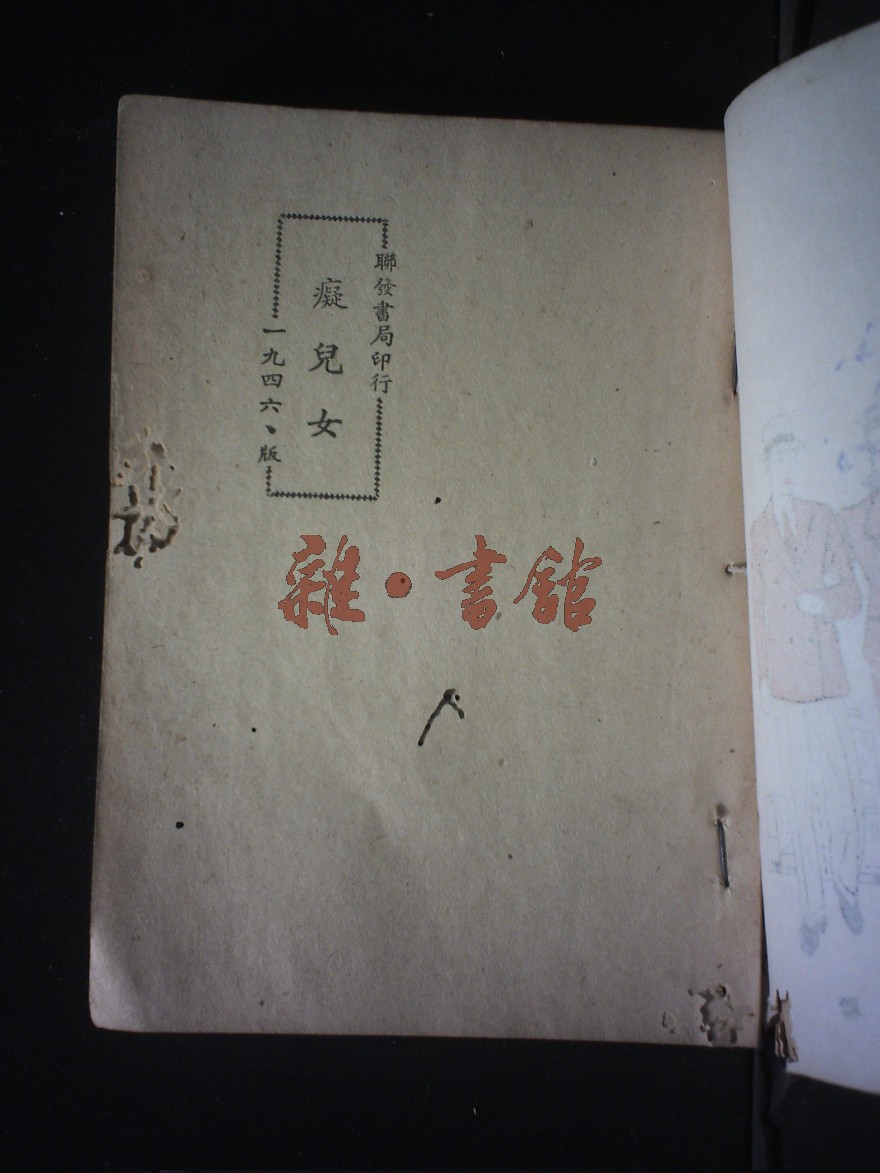 聯發書局印行
癡兒女
一九四六、版
雜·書館